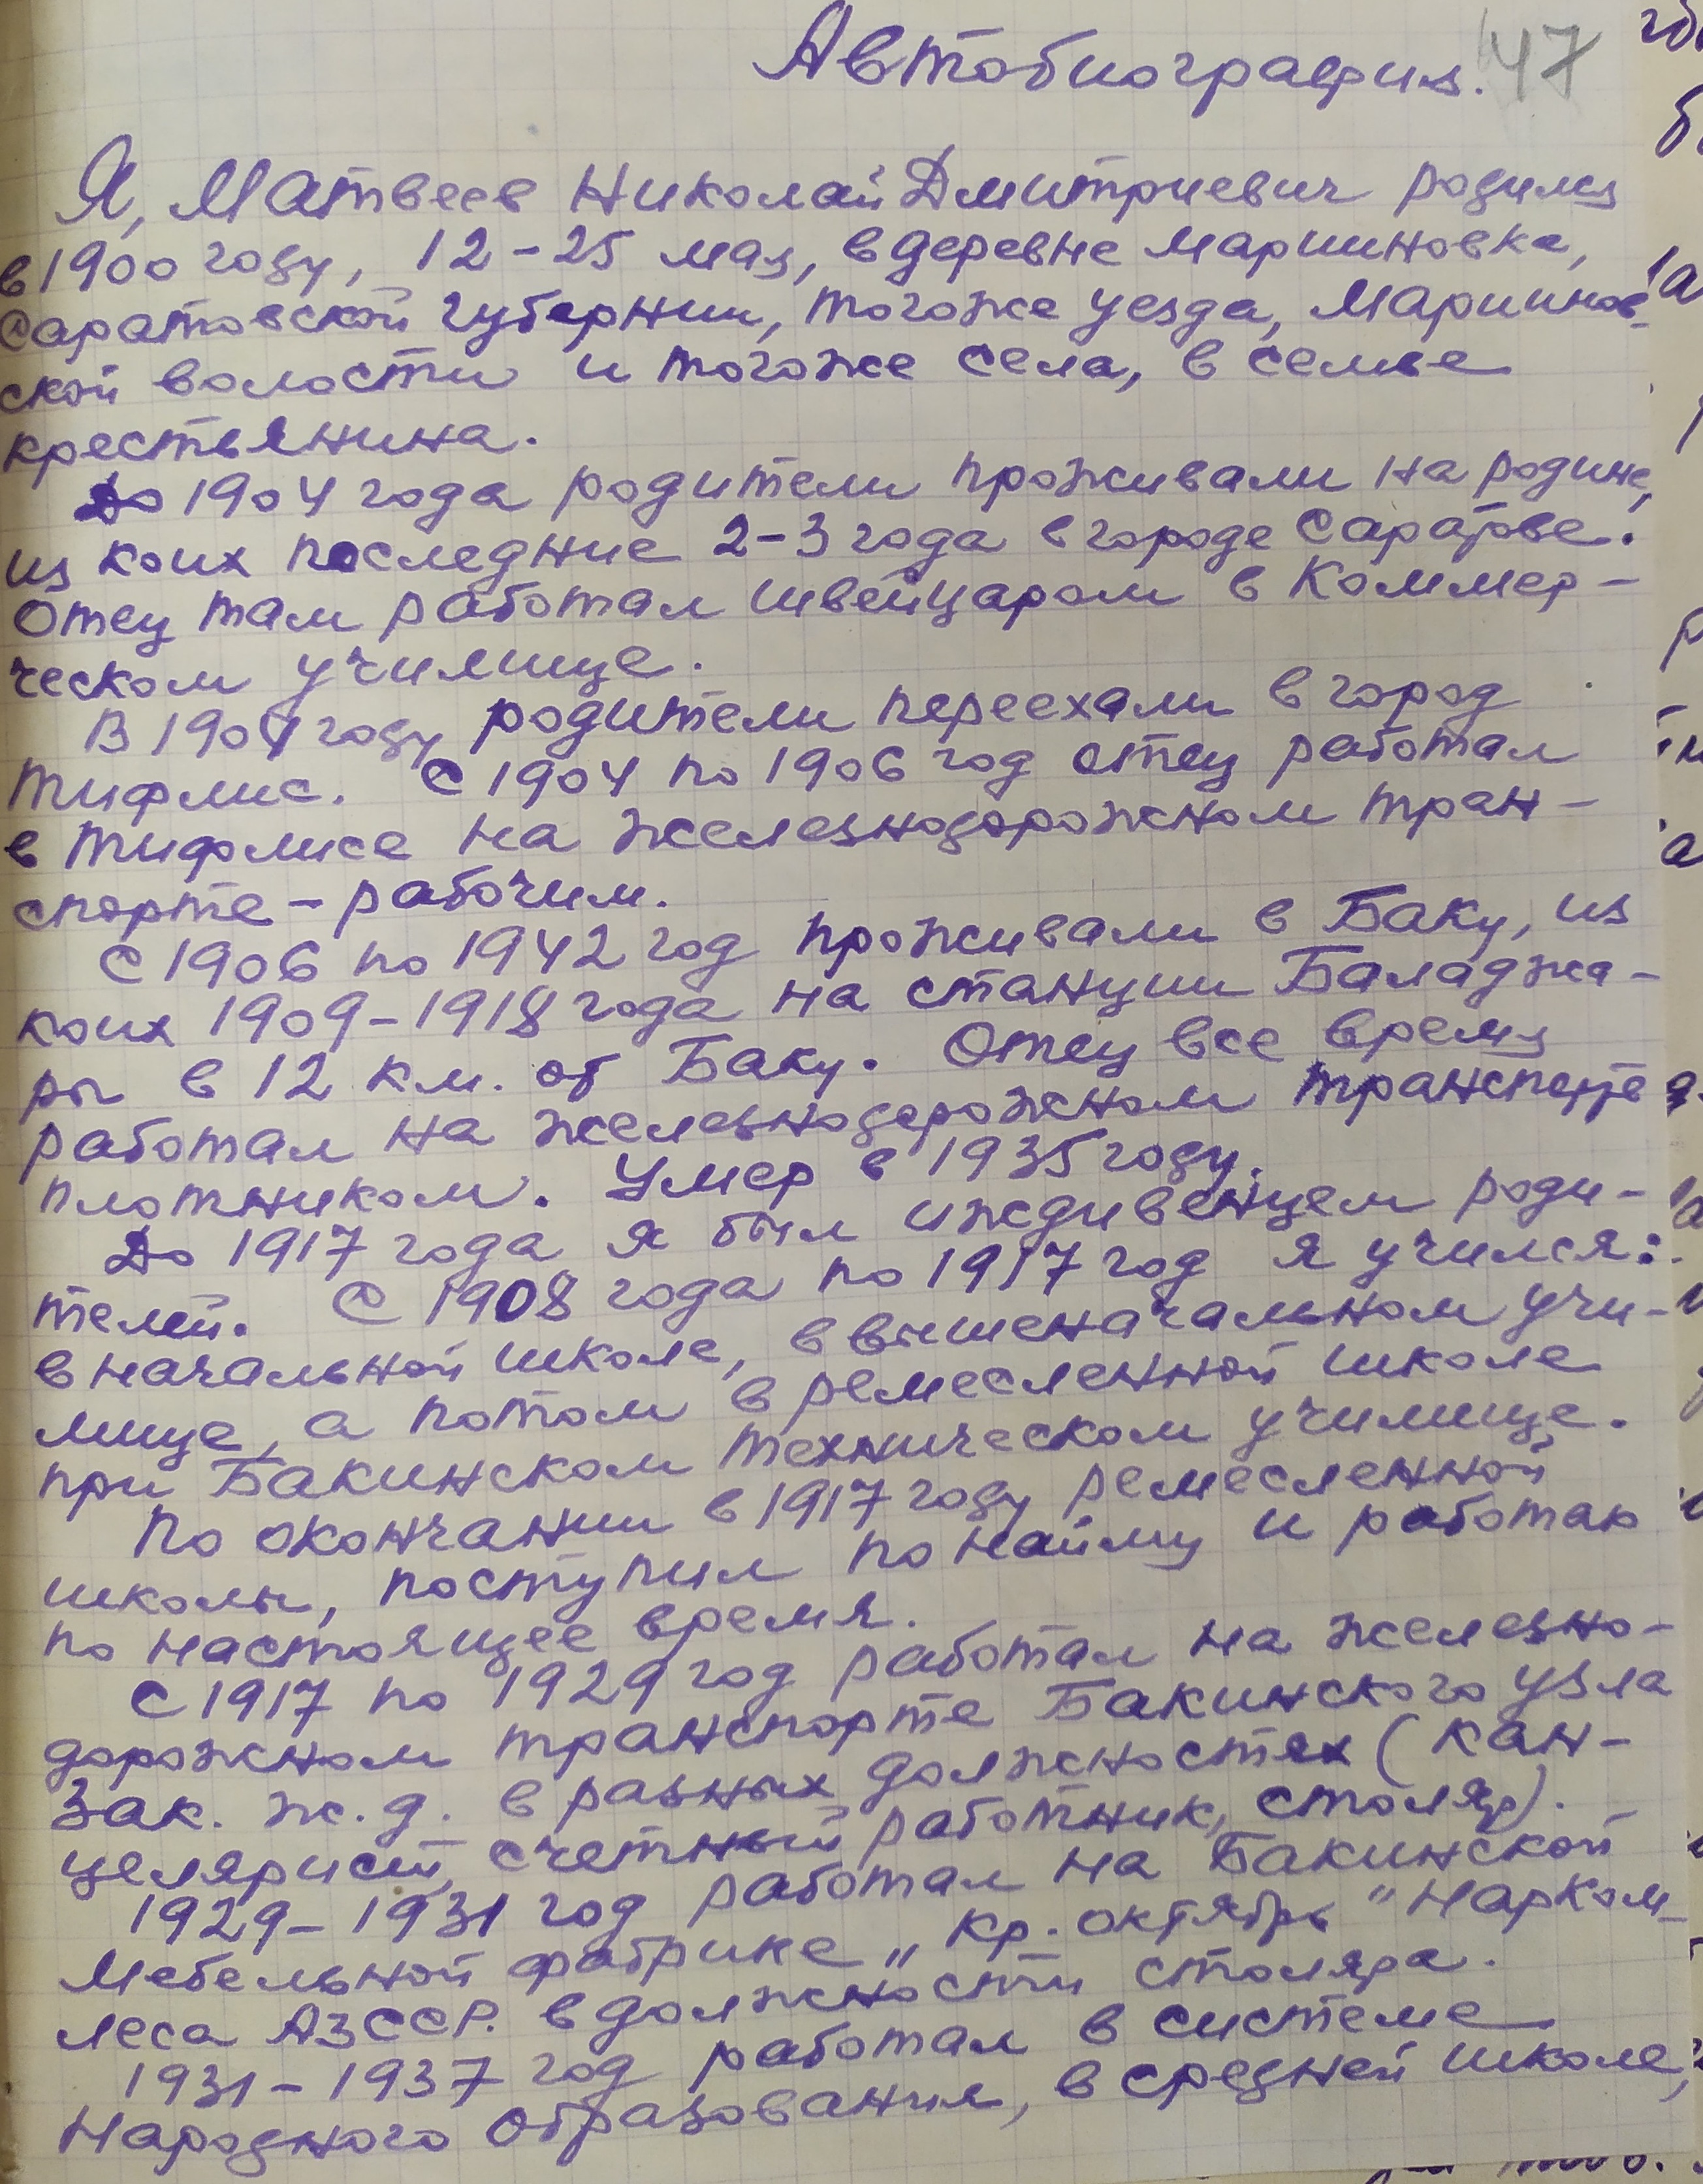 Автобиография. 47
Я, Матвеев Николай Дмитриевич родился
в 1900 году, 12-25 мая, в деревне Марииновке,
Саратовской губернии, тогоже уезда, Мариинов-
ской волости и тогоже села, в семье
крестьянина.
До 1904 года родители проживали на родине,
из коих последние 2-3 года в городе Саратове.
Отец там работал швейцаром в Коммер-
ческом училище.
В 1904 году родители переехали в город
Тифлис. С 1904 по 1906 год отец работал
в Тифлисе на железнодорожном тран-
спорте - рабочим.
С 1906 по 1942 год проживали в Баку, из
коих 1909-1918 года на станции Баладжа-
ры в 12 км. от Баку. Отец все время
работал на железнодорожном транспорте
плотником. Умер в 1935 году.
До 1917 года я был иждивенцем роди-
телей. С 1908 года по 1917 год я учился:
в начальной школе, в вышеначальном учи-
лище, а потом в ремесленной школе
при Бакинском техническом училище.
По окончании в 1917 году ремесленной
школы, поступил по найму и работаю
по настоящее время.
С 1917 по 1929 год работал на железно-
дорожном транспорте Бакинского узла
Зак. ж.д. в разных должностях (кан-
целярист, счетный работник, столяр).
1929-1931 год работал на Бакинской
Мебельной фабрике „Кр. октябрь" Нарком-
леса АзССР. в должности столяра.
1931-1937 год работал в системе
Народного образования, в средней школе,